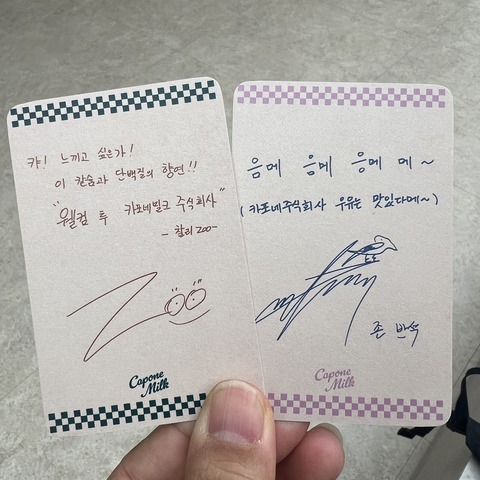 캬! 느끼고 싶은가!
이 칼슘과 단백질의 향연!!
"웰컴 투 카포네밀크 주식회사"
- 찰리 ZOO -
Zoo
Capone
Milk
음메 음메 응메 메~
(카포네주식회사 우유는 맛있다메~)
존 반석
Capone
Milk